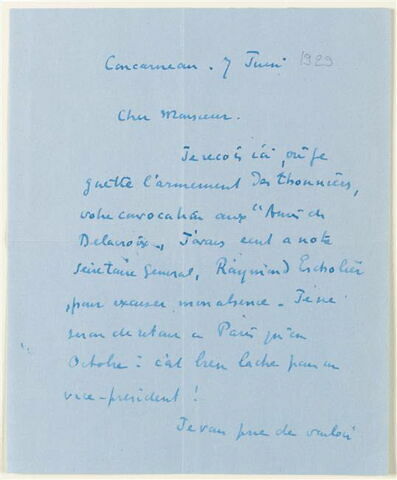 Concarneau. 7 Juin 1929
Cher Monsieur.
Je reçois ici, où je
guette l'armement des thonniers,
votre convocation aux "Amis de
Delacroix", J'avais écrit a notre
Secrétaire General, Raymond Escholier
, pour excuser mon absence - Je ne
serai de retour a Paris qu'en
Octobre : c'est bien lache pour un
vice-president !
Je vous prie de vouloir